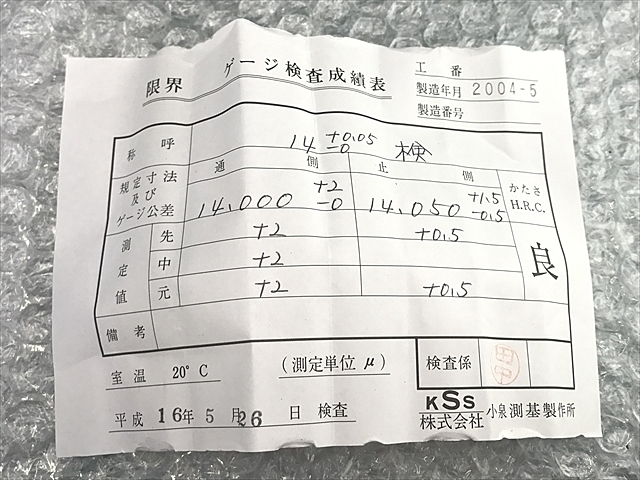 限界 ゲージ検査成績表
工番
製造年月 2004-5
製造番号
称呼 14 +0.05 -0 検
規定寸法及びゲージ公差 通側 止側 かたさ H.R.C.
14,000 +2 -0 14,050 +1.5 -0.5
測定値 先 +2 +0.5 良
中 +2
元 +2 +0.5
備考
室温 20°C (測定単位 μ) 検査係 田中
平成 16年 5月 26日 検査
KSS
株式会社 小泉測基製作所